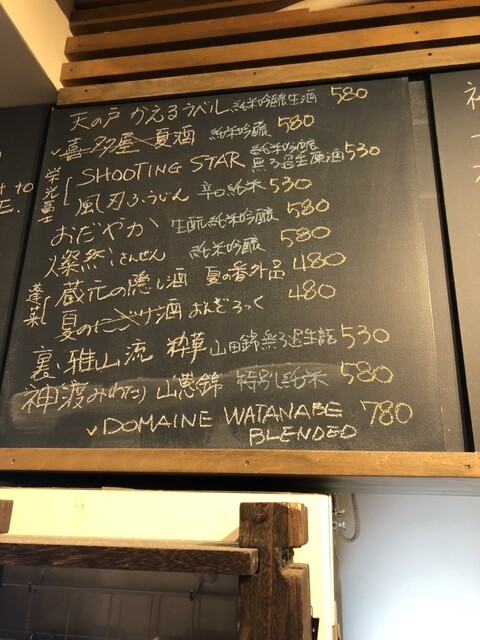 天の戸 かえるラベル 純米吟醸生酒 580
喜多屋 夏酒 純米吟醸 580
栄光冨士
SHOOTING STAR 純米吟醸 無ろ過生原酒 530
風刃ふうじん 辛口純米 530
おだやか 生酛純米吟醸 580
燦然 さんぜん 純米吟醸 580
蓬莱
蔵元の隠し酒 夏の番外品 480
夏のにごり酒 おんざろっく 480
裏・雅山流 粋華 山田錦無ろ過生詰 530
神渡みわたり 山恵錦 特別純米 580
DOMAINE WATANABE 780
BLENDED
to
E.